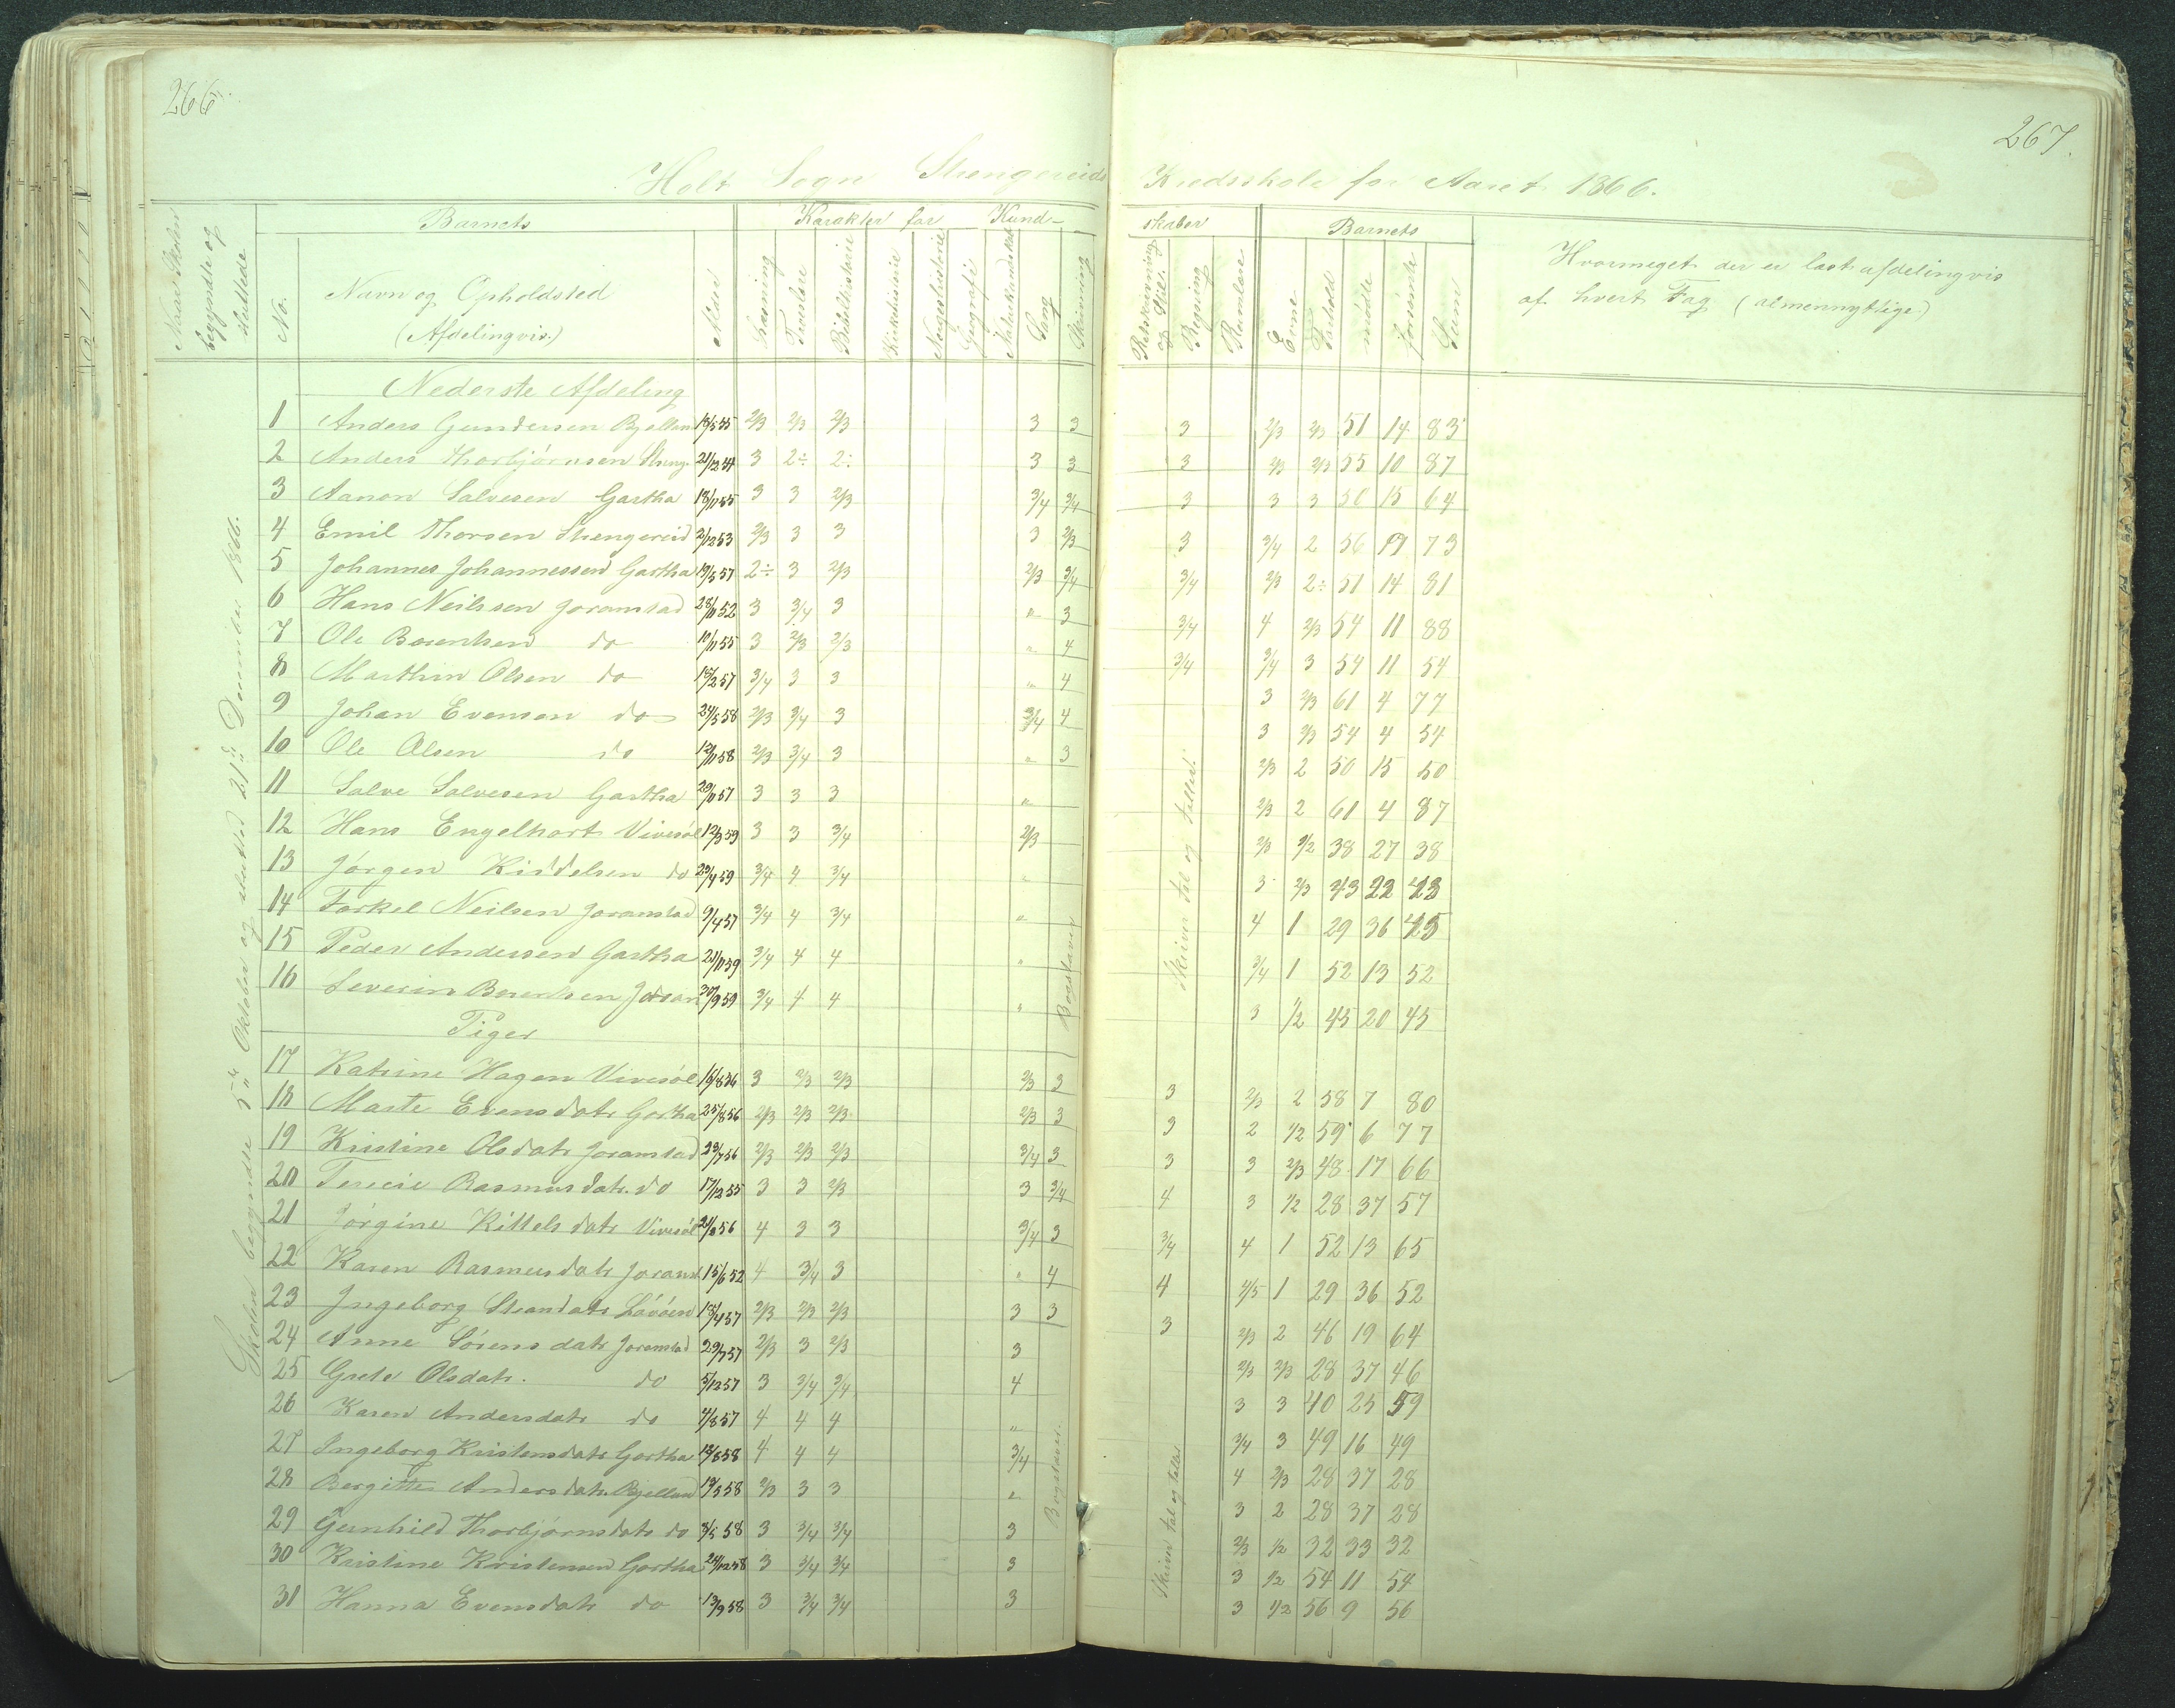 266
267.
Holt Sogn Stengereids Kredsskole for Aaret 1866.
Naar Skolen begyndte og sluttede
No.
Barnets
Navn og Opholdsted
(Afdelingvis.)
Alder
Karakter for Kundskaber
Læsning
Troeslære
Bibelhistorie
Kirkehistorie
Norgeshistorie
Geografi
Naturkundskab
Sang
Skrivning
Retskrivning og Stil.
Regning
Rumlære
Barnets
Evne
Forhold
mødte
forsømte
Sum
Hvormeget der er læst afdelingvis
af hvert Fag (almennyttige)
Skolen begyndte 5te Oktober og sluttet 21de December 1866.
Nederste Afdeling
1 Anders Gundersen Bjelland 18/5 55 2/3 2/3 2/3 3 3 3 2/3 2/3 51 14 83
2 Anders Thorbjørnsen Steng. 21/12 54 3 2÷ 2÷ 3 3 3 2/3 2/3 55 10 87
3 Aanon Salvesen Gartha 18/11 55 3 3 2/3 3/4 3/4 3 3 3 50 15 64
4 Emil Thorsen Stengereid 2/12 53 2/3 3 3 3 2/3 3 3/4 2 56 17 73
5 Johannes Johannessen Gartha 19/5 57 2÷ 3 2/3 2/3 3/4 3/4 2/3 2÷ 51 14 81
6 Hans Neilssen Joramstad 28/11 52 3 3/4 3 " 3 3/4 4 2/3 54 11 88
7 Ole Berenhsen do 10/11 55 3 2/3 2/3 " 4 3/4 3/4 3 54 11 54
8 Marthin Olsen do 15/2 57 3/4 3 3 " 4 3 2/3 61 4 77
9 Johan Evensen do 24/5 58 2/3 3/4 3 3/4 4 3 2/3 54 4 54
10 Ole Olsen do 12/11 58 2/3 3/4 3 " 3 2/3 2 50 15 50
11 Salve Salvesen Gartha 29/11 57 3 3 3 " 2/3 2 61 4 87
12 Hans Engelhart Vivesøl 12/3 59 3 3 3/4 2/3 2/3 1/2 38 27 38
13 Jørgen Kiddelsen do 29/4 59 3/4 4 3/4 " 3 2/3 43 22 43
14 Torkel Neilsen Joramstad 9/4 57 3/4 4 3/4 " 4 1 29 36 45
15 Peder Andersen Gartha 21/11 59 3/4 4 4 " 3/4 1 52 13 52
16 Severin Berenhsen Joram 30/9 59 3/4 4 4 " 3 1/2 45 20 45
Bogstaver
Skrive tal og teller.
Piger
17 Katrine Hagen Vivesøl 16/8 56 3 2/3 2/3 2/3 3 3 2/3 2 58 7 80
18 Marte Evensdatr Gartha 25/8 56 2/3 2/3 2/3 2/3 3 3 2 1/2 59 6 77
19 Kristine Olsdatr Joramstad 29/7 56 2/3 2/3 2/3 3/4 3 3 3 2/3 48 17 66
20 Terecie Rasmusdatr. do 17/12 55 3 3 2/3 3 3/4 4 3 1/2 28 37 57
21 Jørgine Kittelsdatr Vivesøl 21/8 56 4 3 3 3/4 3 3/4 4 1 52 13 65
22 Karen Rasmusdatr Joramst 15/6 52 4 3/4 3 " 4 4 4/5 1 29 36 52
23 Ingeborg Steandatr Løvåsen 18/4 57 2/3 2/3 2/3 3 3 3 2/3 2 46 19 64
24 Anne Sørensdatr Joramstad 29/7 57 2/3 3 2/3 3 2/3 2/3 28 37 46
25 Grete Olsdatr. do 5/12 57 3 3/4 3/4 4 3 3 40 25 59
26 Karen Andersdatr do 4/8 57 4 4 4 " 3/4 3 49 16 49
27 Ingeborg Kristensdatr Gartha 12/8 58 4 4 4 3/4 4 2/3 28 37 28
28 Bergitte Andersdatr. Bjelland 19/5 58 2/3 3 3 " 3 2 28 37 28
29 Gunhild Thorbjørnsdatr do 8/5 58 3 3/4 3/4 3 2/3 1/2 32 33 32
30 Kristine Kristensen Gartha 24/12 58 3 3/4 3/4 3 3 1/2 54 11 54
31 Hanna Evensdatr do 13/9 58 3 3/4 3/4 3 3 1/2 56 9 56
Bogstaver.
Skrive tal og teller